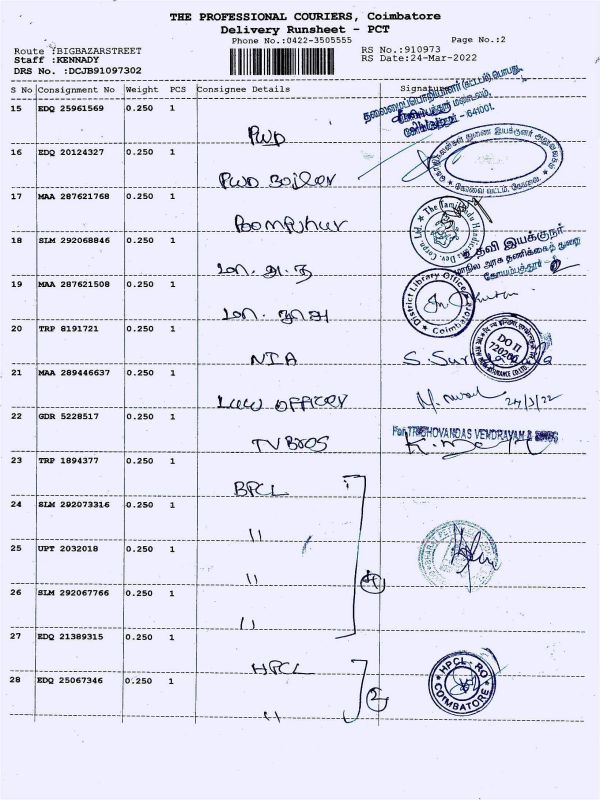 THE PROFESSIONAL COURIERS, Coimbatore
Delivery Runsheet - PCT
Phone No.:0422-3505555 Page No.:2
Route :BIGBAZARSTREET RS No.:910973
Staff :KENNADY RS Date:24-Mar-2022
DRS No. :DCJB91097302
S No Consignment No Weight PCS Consignee Details Signature
15 EDQ 25961569 0.250 1
PWD
641001.
16 EDQ 20124327 0.250 1
PWD Boiler
17 MAA 287621768 0.250 1
Poompuhar
18 SLM 292068846 0.250 1
மா. அ. த
தவி இயக்குநர்
மாநில அரசு தணிக்கைத் துறை
கோயம்புத்தூர்
19 MAA 287621508 0.250 1
District Library Office
Coimbatore
20 TRP 8191721 0.250 1
NIA
DO II
720200
21 MAA 289446637 0.250 1
LAW OFFICER
24/3/22
22 GDR 5228517 0.250 1
TV BROS
For TRIBHOVANDAS VENDRAVAN & BROS
23 TRP 1894377 0.250 1
BPCL
24 SLM 292073316 0.250 1
"
25 UPT 2032018 0.250 1
"
4
26 SLM 292067766 0.250 1
"
27 EDQ 21389315 0.250 1
HPCL
28 EDQ 25067346 0.250 1
"
2
HPCL - RO
COIMBATORE